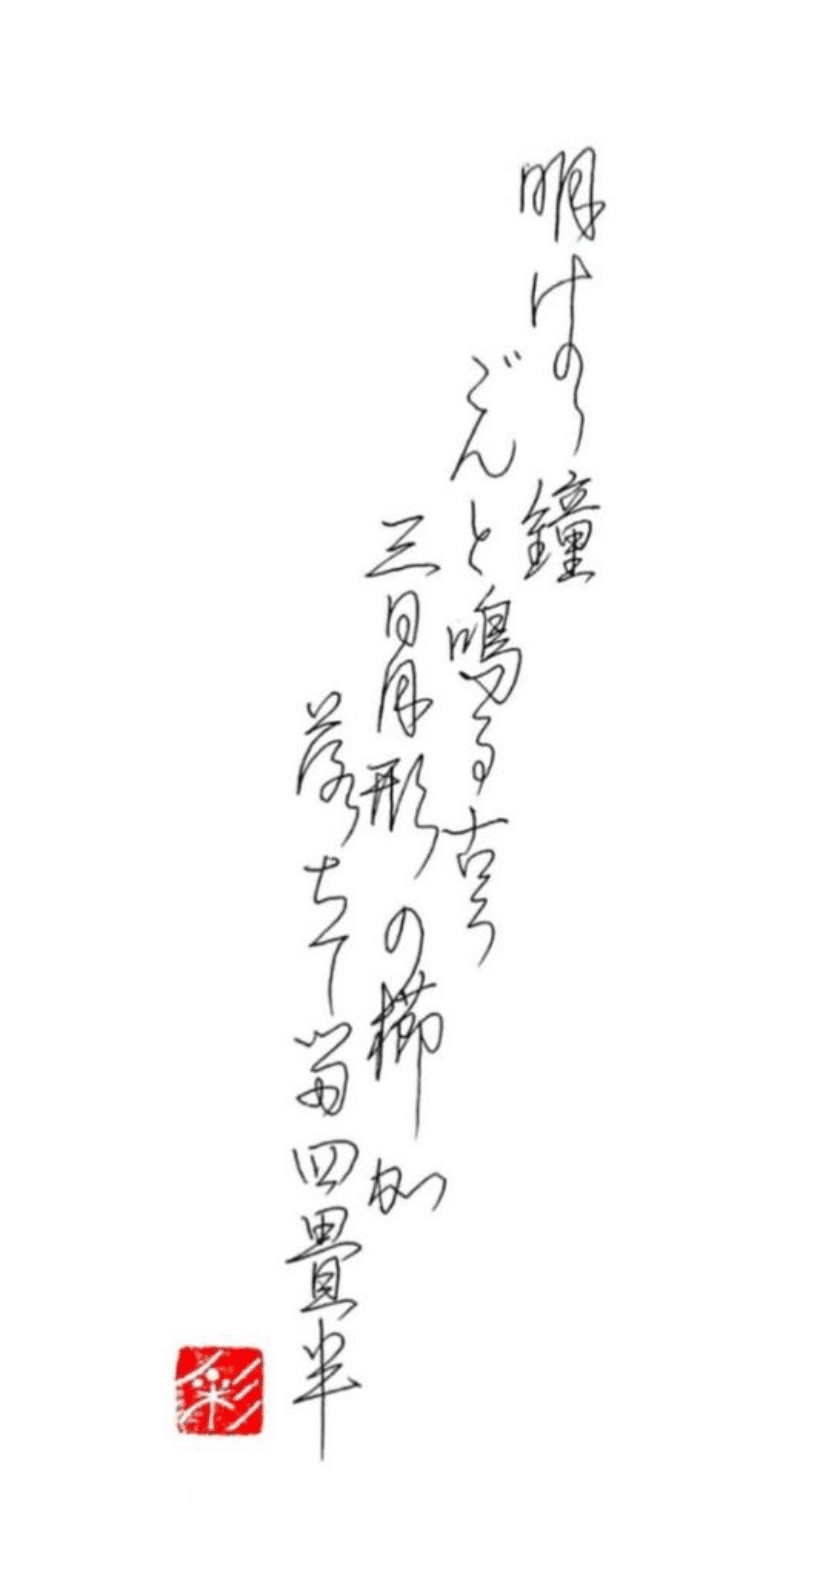 明けの鐘
ごんと鳴る古ろ
三日月形の櫛加
落ちて留四畳半
彩